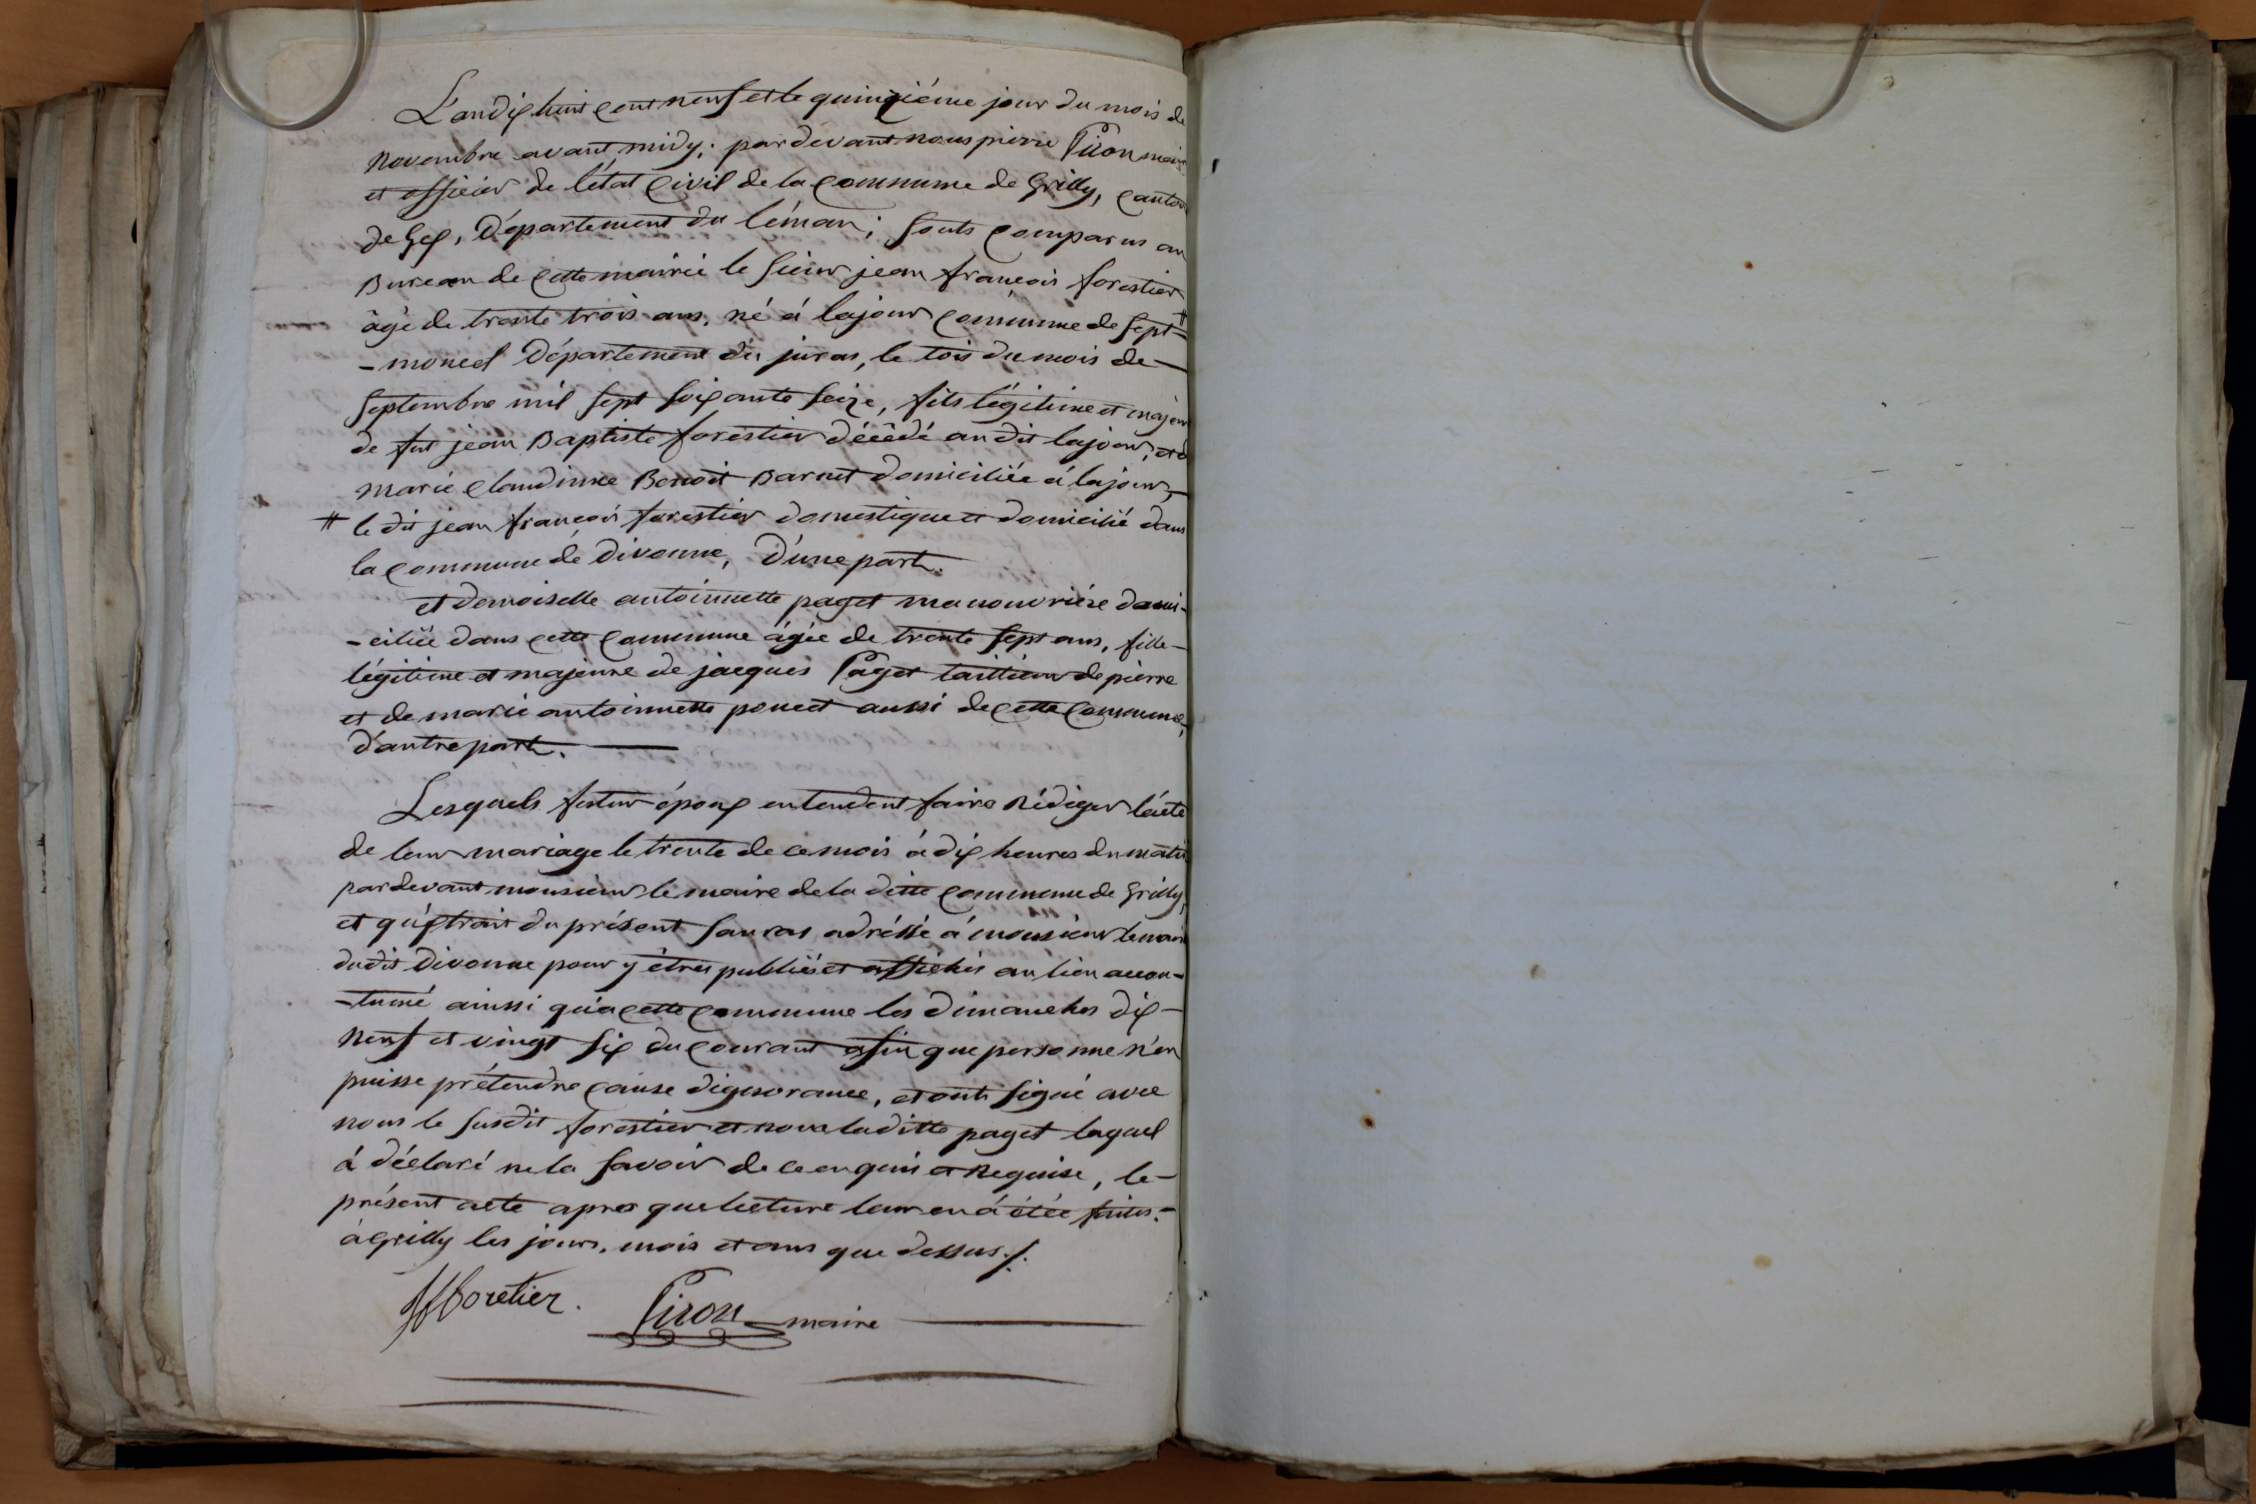 L'an dix huit cent neuf et le quinzième jour du mois de
novembre avant midy; pardevant nous pierre Piron maire
et officier de l'état Civil de la Commune de Grilly, canton
de Gex, Département du léman; sonts comparus au
Bureau de cette mairie le sieur jean françois forestier #
âgé de trente trois ans, né á lajour commune de Sept-
-moncel Département du juras, le tois du mois de-
septembre mil sept soixante seize, fils légitime et majeur
de fut jean Baptiste forestier décédé au dit lajour, et d
marie claudinne Benoit Barnet domiciliée á lajour,-
# le dit jean françois forestier domestique et domicilié dans
la commune de Divonne, D'une part.
et demoiselle antoinnette paget manouvriére domi-
-ciliée dans cette Commune âgée de trente sept ans, fille-
légitime et majeure de jacques Paget taillieur de pierre
et de marie antoinnette poncet aussi de cette Commune,
d'autre part.
Lesquels futur époux entendent faire Rédiger l'acte
de leur mariage le trente de ce mois á dix heures du matin
pardevant monsieur le maire de la ditte commune de Grilly,
et qu'extrait du présent sauras adréssé á monsieur le maire
dudit Divonne pour y êtres publiés et affichés au lieu accou-
-tumé ainssi qu'a cette commune les dimanches dix-
neuf et vingt six du courant afin que personne n'en
puisse prétendre cause d'ignorance, et onts signé avec
nous le susdit forestier et non la ditte paget laquel
á déclaré ne la savoir de ce enquis et Requise, le-
présent acte apres que lecture leur en á étée faites.-
á Grilly les jours, mois et ans que dessus./.
JfForetier. Piron maire